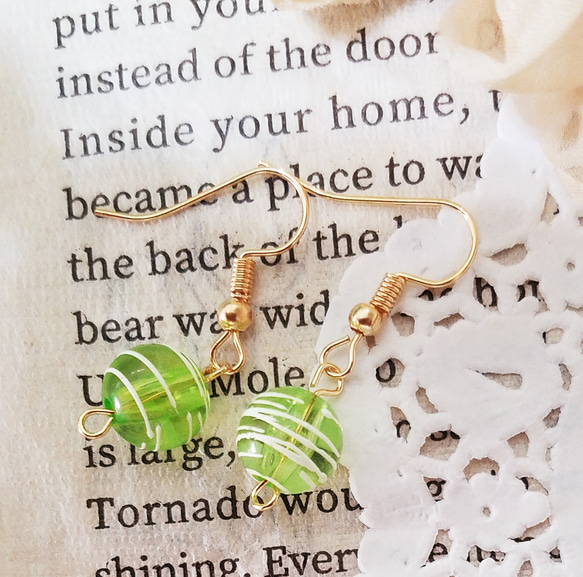 put in your
instead of the door
Inside your home,
became a place to
the back of the
bear was wid
Mole
is large,
Tornado wou
shining. Every